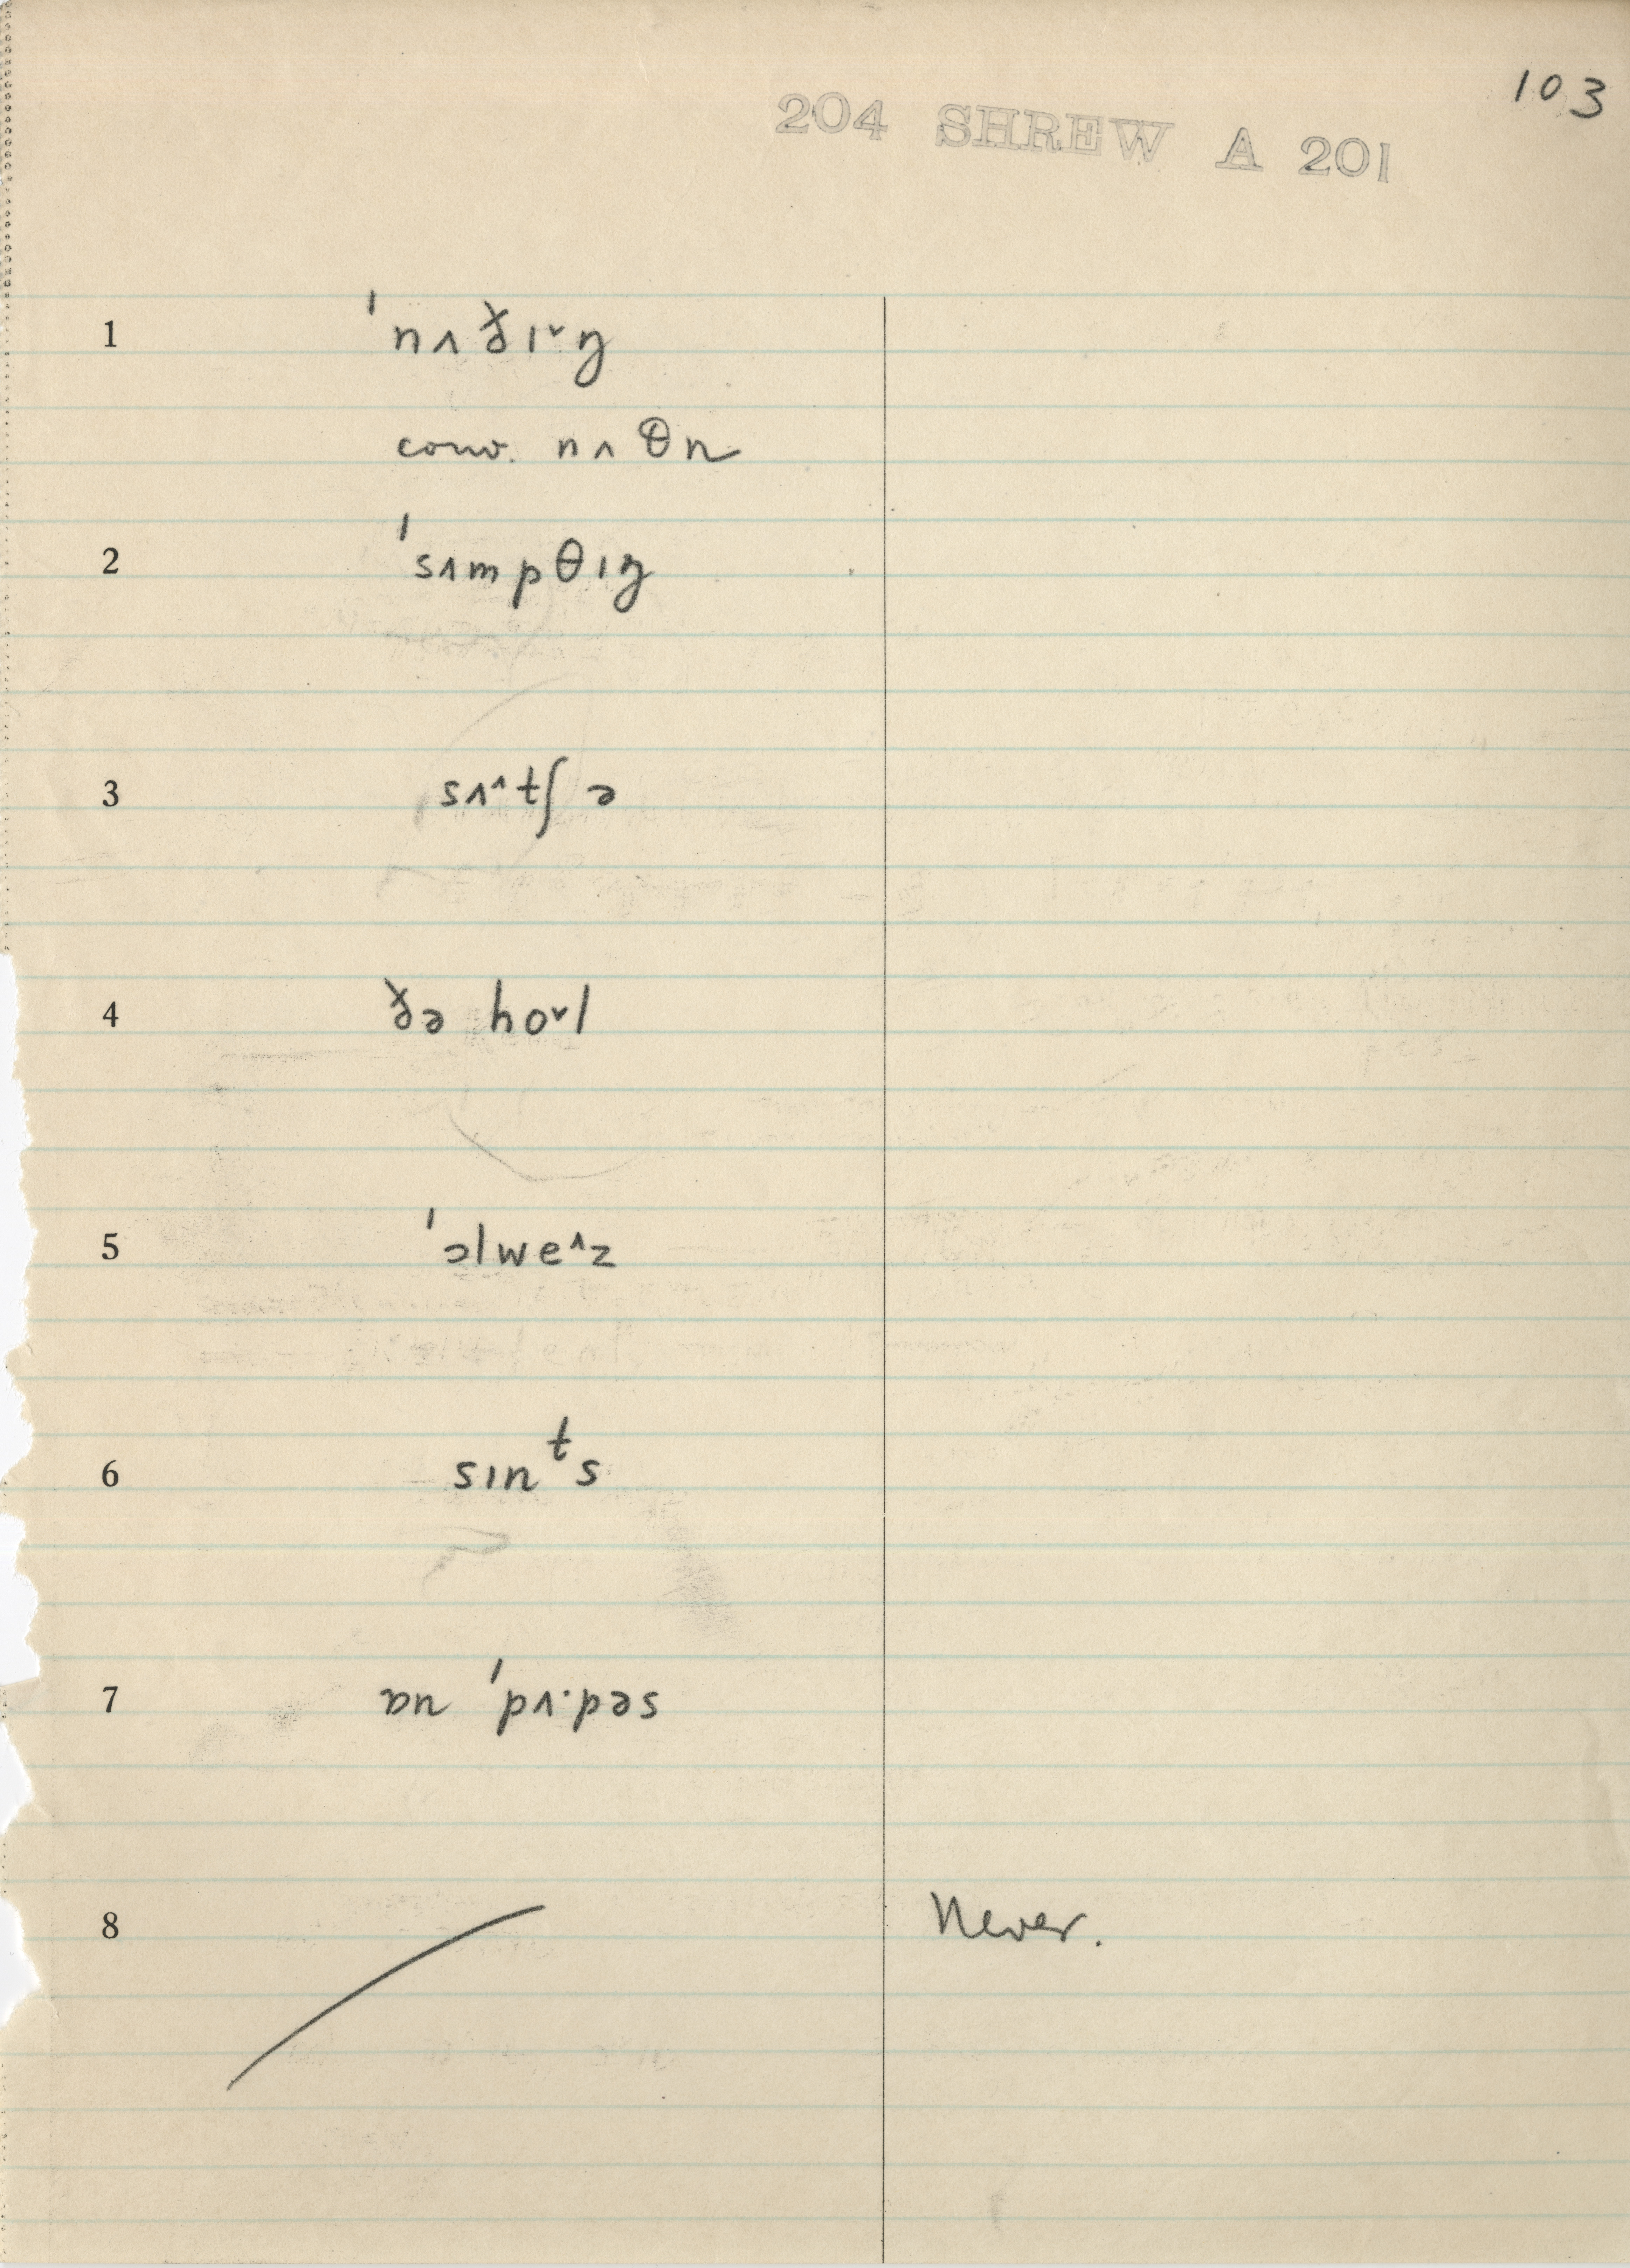 103
204 SHREW A 201
1 ˈnʌðɪ˅ŋ
conv. nʌθn
2 ˈsʌmpθɪŋ
3 sʌ^tʃ ə
4 ðə ho˅l
5 ˈɔlwe^z
6 sɪnᵗs
7 ɒn ˈpʌ·pəs
8 Never.